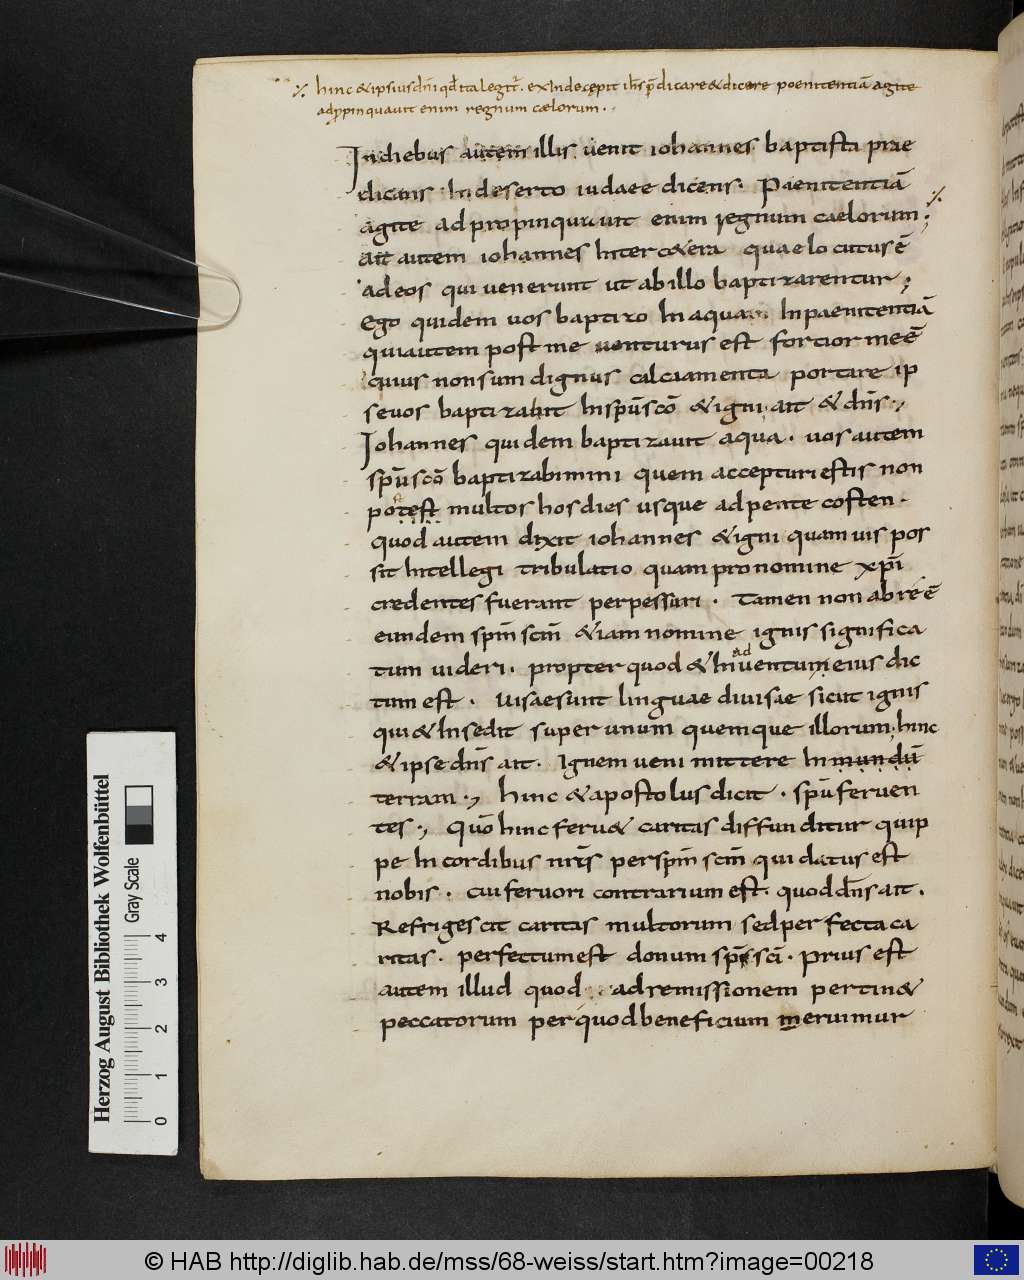 ⁒ hinc & ipsius dñi qđ ita legit̃. exInde cępit ih̃s p̃dicare & dicere poenitentiã agite
adp̃pinquauit enim regnum cælorum .
In diebus autem illis uenit iohannes baptista prae
dicans In deserto iudaee dicens. Paenitentiã
agite adpropinquauit enim regnum caelorum; ⁒
Ait autem iohannes Inter c&era quae locutus ẽ
ad eos qui uenerunt ut ab illo baptizarentur;
Ego quidem uos baptizo In aqua In paenitentiã
qui autem post me uenturus est fortior me ẽ
cuius non sum dignus calciamenta portare ip
se uos baptizabit In spũ scõ & igni. ait & dñs;
Iohannes quidem baptizauit aqua. uos autem
spũ scõ baptizabimini quem accepturi estis non
potest multos hos dies usque ad pentecosten.
quod autem dixit iohannes & igni quamuis pos
sit Intellegi tribulatio quam pro nomine xp̃i
credentes fuerant perpessuri. Tamen non ab re ẽ
eundem spm̃ scm̃ &iam nomine ignis significa
tum uideri. propter quod & In ad uentum eius dic
tum est. Uisae sunt linguae diuisae sicut ignis
qui & Insedit super unum quemque illorum; hinc
& ipse dñs ait. Ignem ueni mittere In mundũ
terram; hinc & apostolus dicit. spũ feruen
tes; Quõ hinc feru& caritas diffunditur quip
pe In cordibus nr̃is per spm̃ scm̃ qui datus est
nobis. Cui feruori contrarium est. quod dñs ait.
Refrigescit caritas multorum sed perfecta ca
ritas. perfectum est donum sp̃s sc̃i. Prius est
autem illud quod ad remissionem pertin&
peccatorum per quod beneficium meruimur
Herzog August Bibliothek Wolfenbüttel
Gray Scale
0 1 2 3 4
© HAB http://diglib.hab.de/mss/68-weiss/start.htm?image=00218